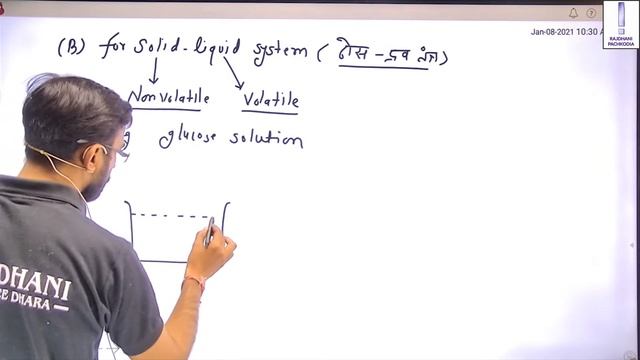 Jan-08-2021 10:30 A
RAJDHANI
PACHKODIA
(B) for Solid-liquid system (ठोस-द्रव तंत्र)
Nonvolatile Volatile
glucose solution
DHANI
DHARA